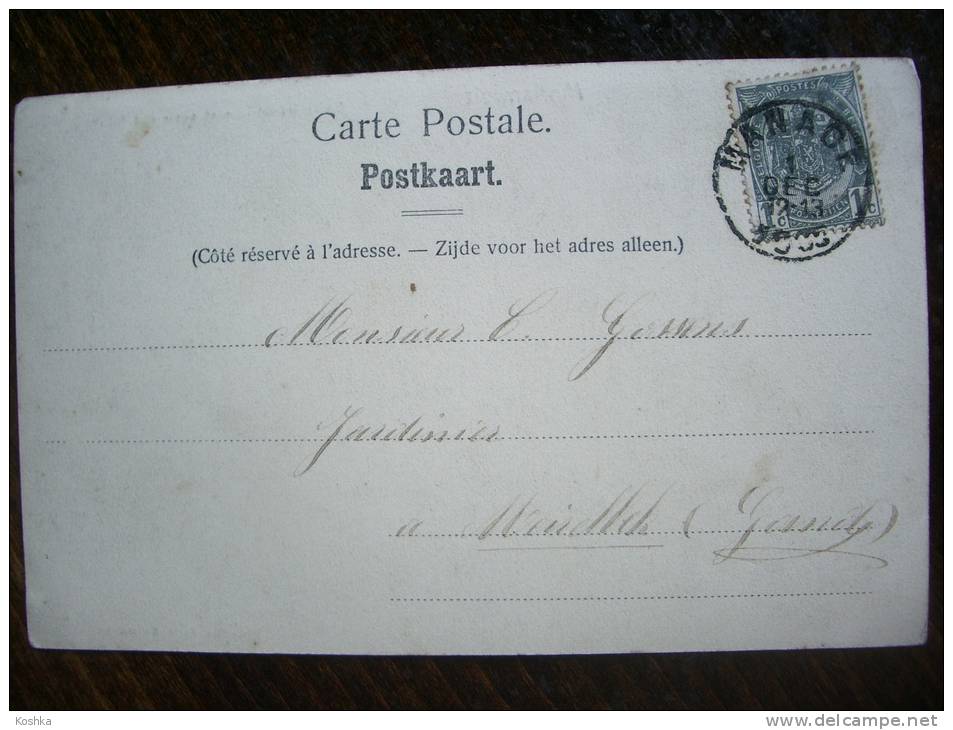 Carte Postale.
Postkaart.
(Côté réservé à l'adresse. — Zijde voor het adres alleen.)
POSTES
1 C 1 C
HANAGE
1
DEC
12-13
Monsieur C. Gossens
Jardinier
a (Gand)
Koshka
www.delcampe.net